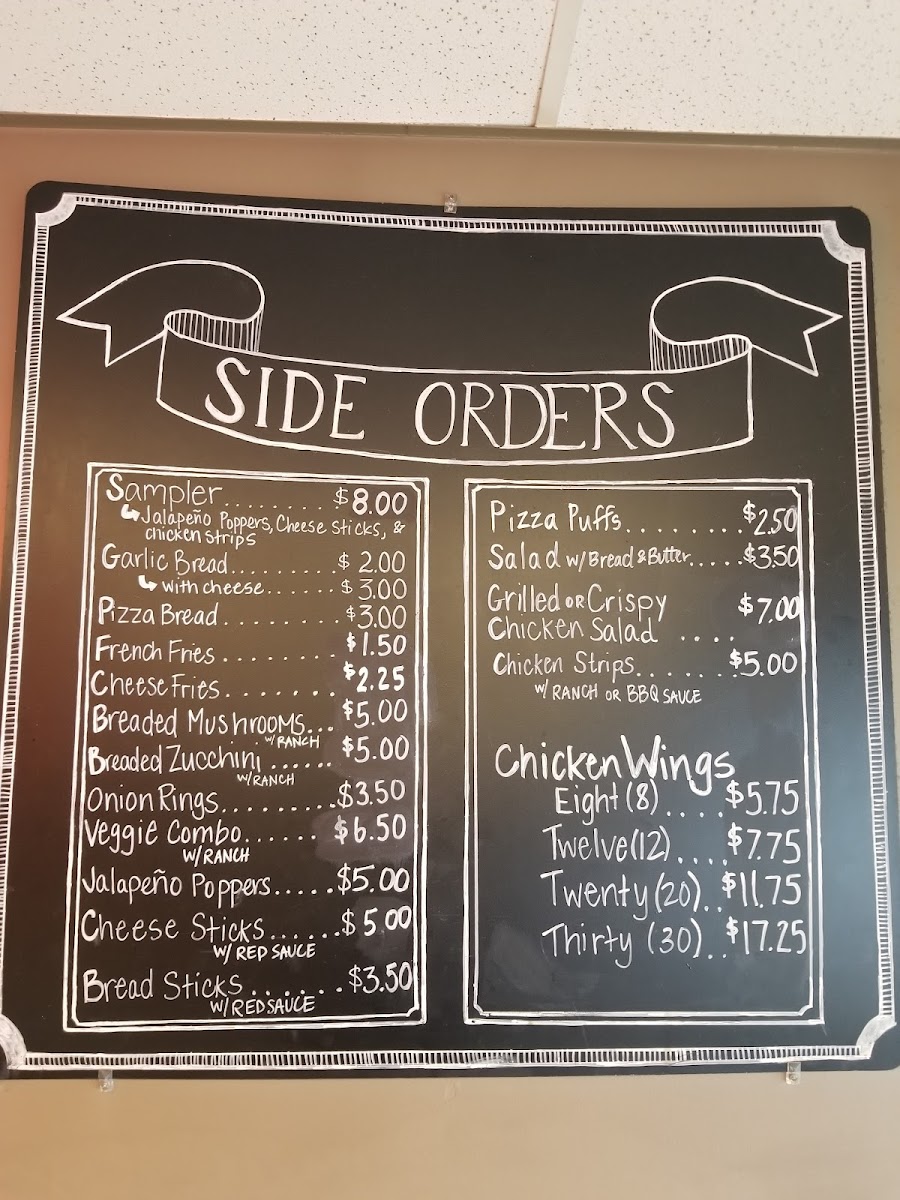 SIDE ORDERS
Sampler........ $8.00
Jalapeño Poppers, Cheese Sticks, &
chicken strips
Garlic Bread......... $2.00
with cheese...... $3.00
Pizza Bread......... $3.00
French Fries........ $1.50
Cheese Fries....... $2.25
Breaded Mushrooms... $5.00
w/ RANCH
Breaded Zucchini...... $5.00
w/RANCH
Onion Rings......... $3.50
Veggie Combo...... $6.50
w/RANCH
Jalapeño Poppers..... $5.00
Cheese Sticks...... $5.00
w/ RED SAUCE
Bread Sticks...... $3.50
w/RED SAUCE
Pizza Puffs........ $2.50
Salad w/ Bread & Butter..... $3.50
Grilled OR Crispy $7.00
Chicken Salad ....
Chicken Strips....... $5.00
w/ RANCH OR BBQ SAUCE
Chicken Wings
Eight (8).... $5.75
Twelve (12).... $7.75
Twenty (20).. $11.75
Thirty (30).. $17.25